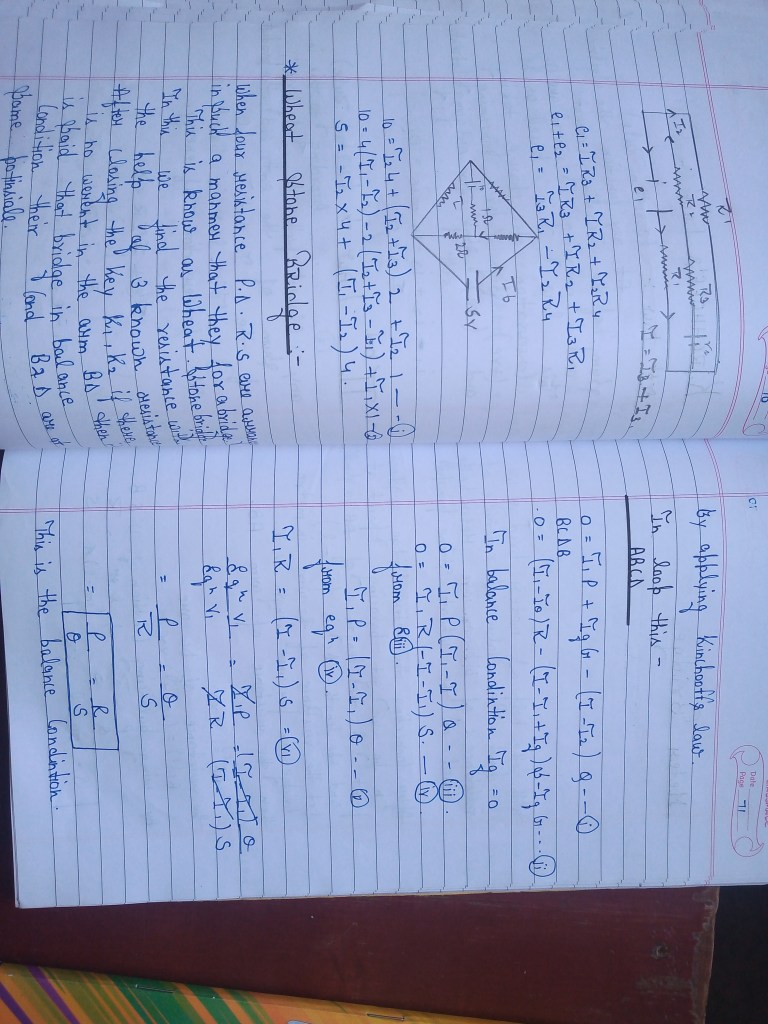 R1
I2 R2 R3
e1 R1
I = I2 + I3,
e1 = IR3 + IR2 + I2R4
e1 + e2 = IR3 + IR2 + I3R1
e1 = I3R1 - I2R4
Ib
1Ω
2Ω
5V
10 = I2 4 + (I2 + I3) 2 + I2 1 -- i
10 = 4(I1 - I2) - 2(I2 + I3 - I1) + I1 X1 -
5 = -I2 X 4 + (I1 - I2) 4.
* Wheat stone BRidge :-
When four resistance P.Q. R.S are
in such a manner that they for a bridge
This is know as Wheat. stone bridge
In this we find the resistance with
the help of 3 known resistance
After closing the key K1, K2 if there
is no in the arm BD then
is said that bridge in balance
Condition their and B2 D are
same
Date
Page 71
By applying Kirchooffs law.
In loop this -
ABCD
0 = I1P + IgG - (I - I2) Q --- i
BCDB
0 = (I1 - I0)R - (I - I1 + Ig) - IgG --- ii
In balance Condintion Ig = 0
0 = I1P (I1 - I) Q -- iii
0 = I1R (-I - I1) S. -- iv
from iii.
I1P = (I - I1) Q -- v
from eqn iv
I1R = (I - I1) S = vi
eqn v1 = I1P = (I - I1) Q
eqn v1 IR (I - I1) S
= P = Q
R S
= P = R
Q S
This is the balance Condintion.